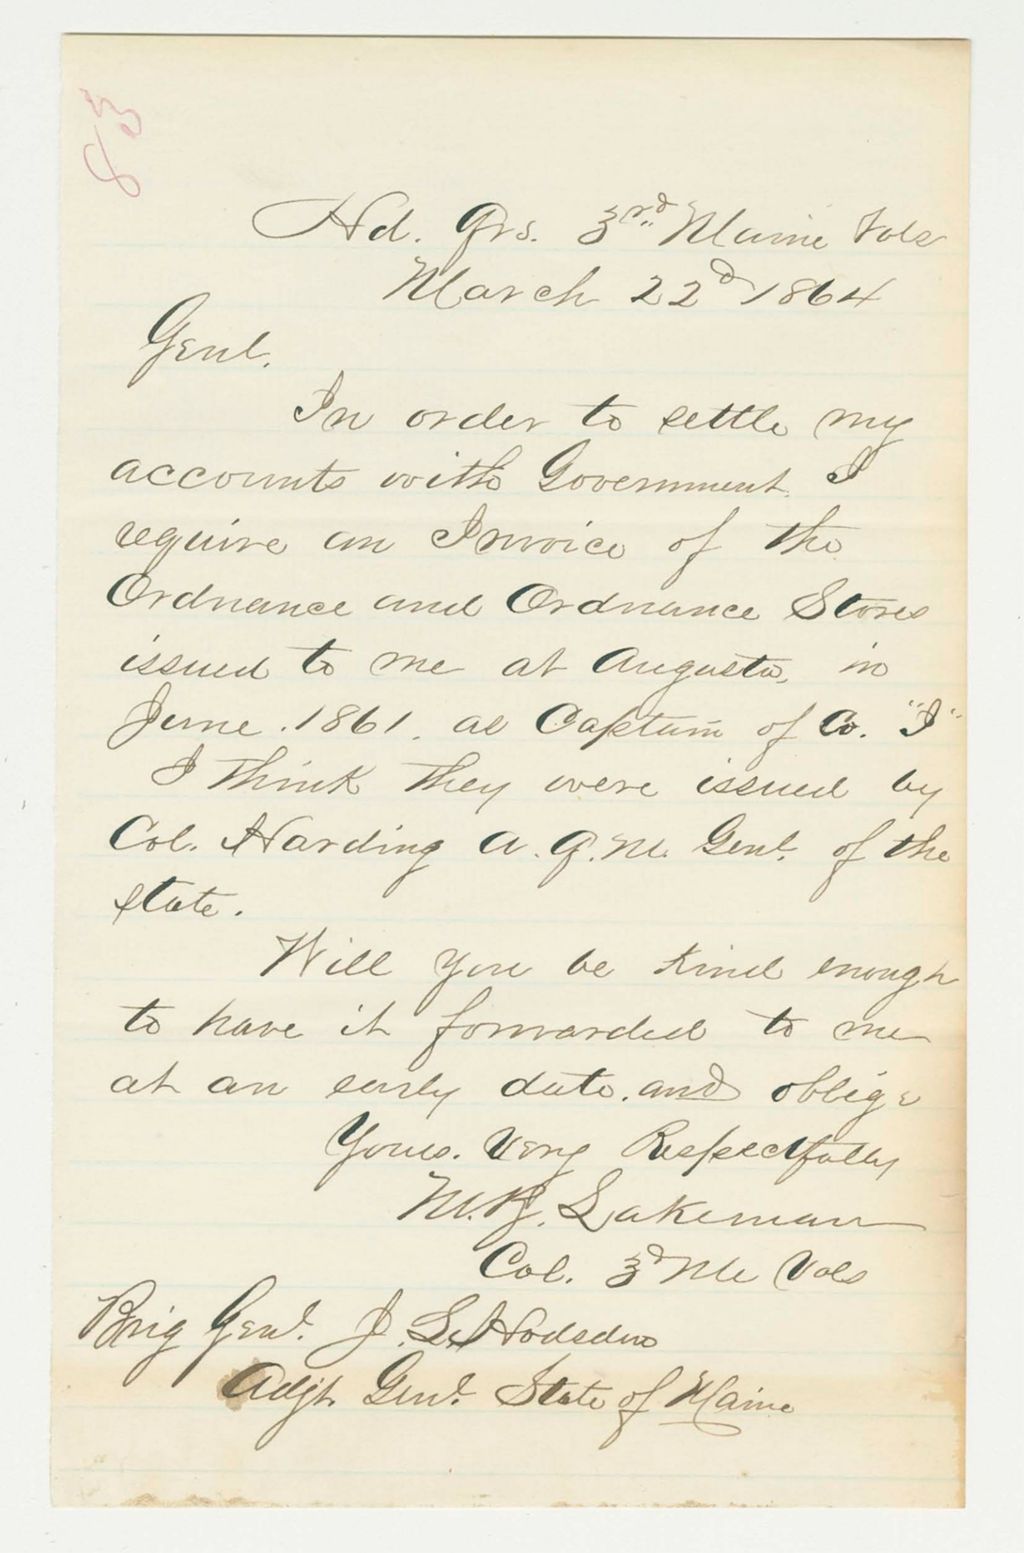 83
Hd. Qrs. 3rd Maine Vols
March 22d 1864
Genl.
In order to settle my
accounts with Government. I
require an Invoice of the
Ordnance and Ordnance Stores
issued to me at Augusta, in
June. 1861. as Captain of Co. "I"
I think they were issued by
Col. Harding A. Q. M. Genl. of the
State.
Will you be kind enough
to have it forwarded to me
at an early date. and oblige
Yours. Very Respectfully
M. B. Lakeman
Col. 3d Me Vols
Brig Genl. J. L. Hodsdon
Adjt. Genl. State of Maine